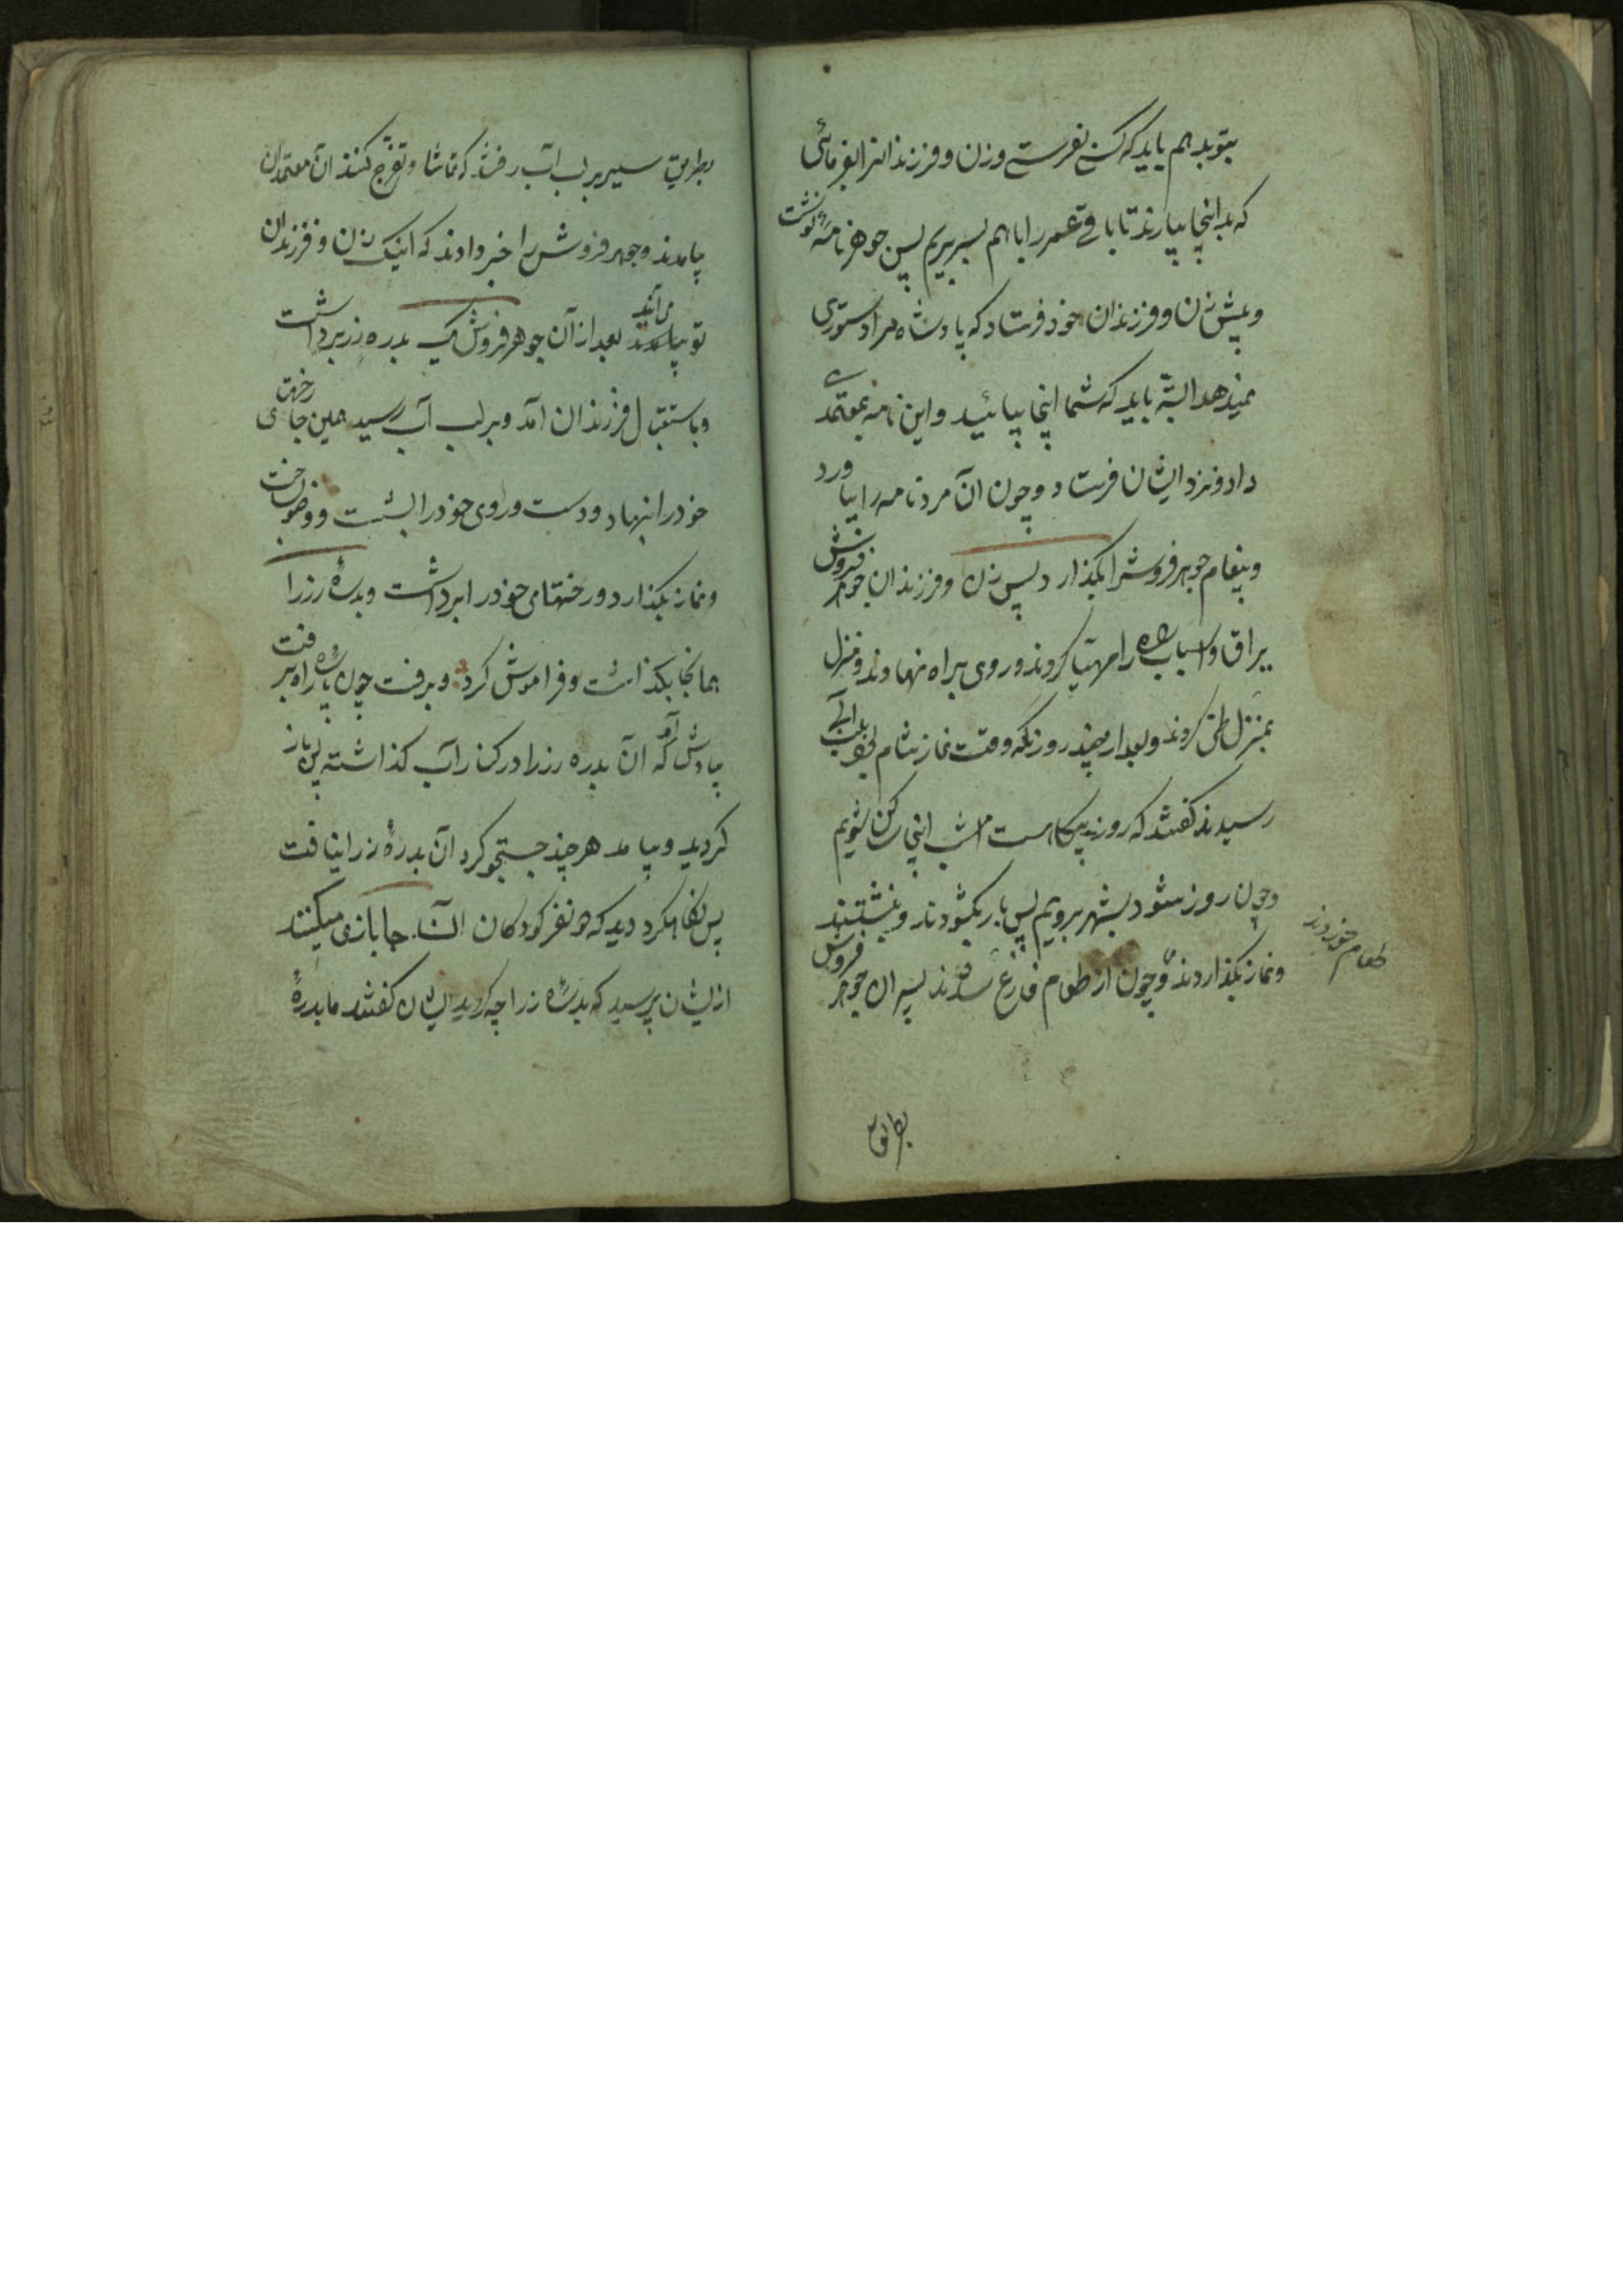 بتو بدهم باید که کس بفرستی وزن و فرزندانرا بفرمائی
که بداینجا بیارند تا باقی عمر را باهم بسر بریم پس جوهر نامۀ نوشت
و پیش زن و فرزندان خود فرستاد که پادشاه مرا دستوری
نمیدهد البتّه باید که شما اینجا بیائید و این نامه بمعتمدی
داد و نزد ایشان فرستاد و چون آن مرد نامه را بیاورد
و پیغام جوهر فروش را بگذارد پس زن و فرزندان جوهر فروش
یراق و اسباب راه را مهیّا کردند و روی براه نهادند و منزل
بمنزل طی کردند و بعد از چند روز نکه وقت نماز شام بلب آبی
رسیدند کفتند که روز بیکاه است امشب اینجا ساکن شویم
و چون روز شود بشهر برویم پس بار بکشودند و بنشستند
و نماز بگذاردند و چون از طعام فارغ شدند پسران جوهر فروش
طعام خوردند
بطریق
بطریق سیر بر لب آب رفتند که تماشا و تفرّج کنند آن معتمدان
بیامدند و جوهر فروش را خبر دادند که اینک زن و فرزندان
تو می‌آیند بعد از آن جوهر فروش یک بدره زر برداشت
و باستقبال فرزندان آمد و بر لب آب رسید همین جای رختهای
خود را بنهاد و دست و روی خود را بشست و وضو ساخت
و نماز بکذارد و رختهای خود را برداشت و بدرۀ زر را
همانجا بکذاشت و فراموش کرد و برفت چون پارۀ راه برفت
بیادش آمد که آن بدره زر را در کنار آب کذاشته پس باز
کردید و بیامد هر چند جستجو کرد آن بدرۀ زر را نیافت
پس نکاه کرد دید که دو نفر کودکان آنجا بازی میکنند
از ایشان پرسید که بدرۀ زر را چه کردید ایشان کفتند ما بدرۀ